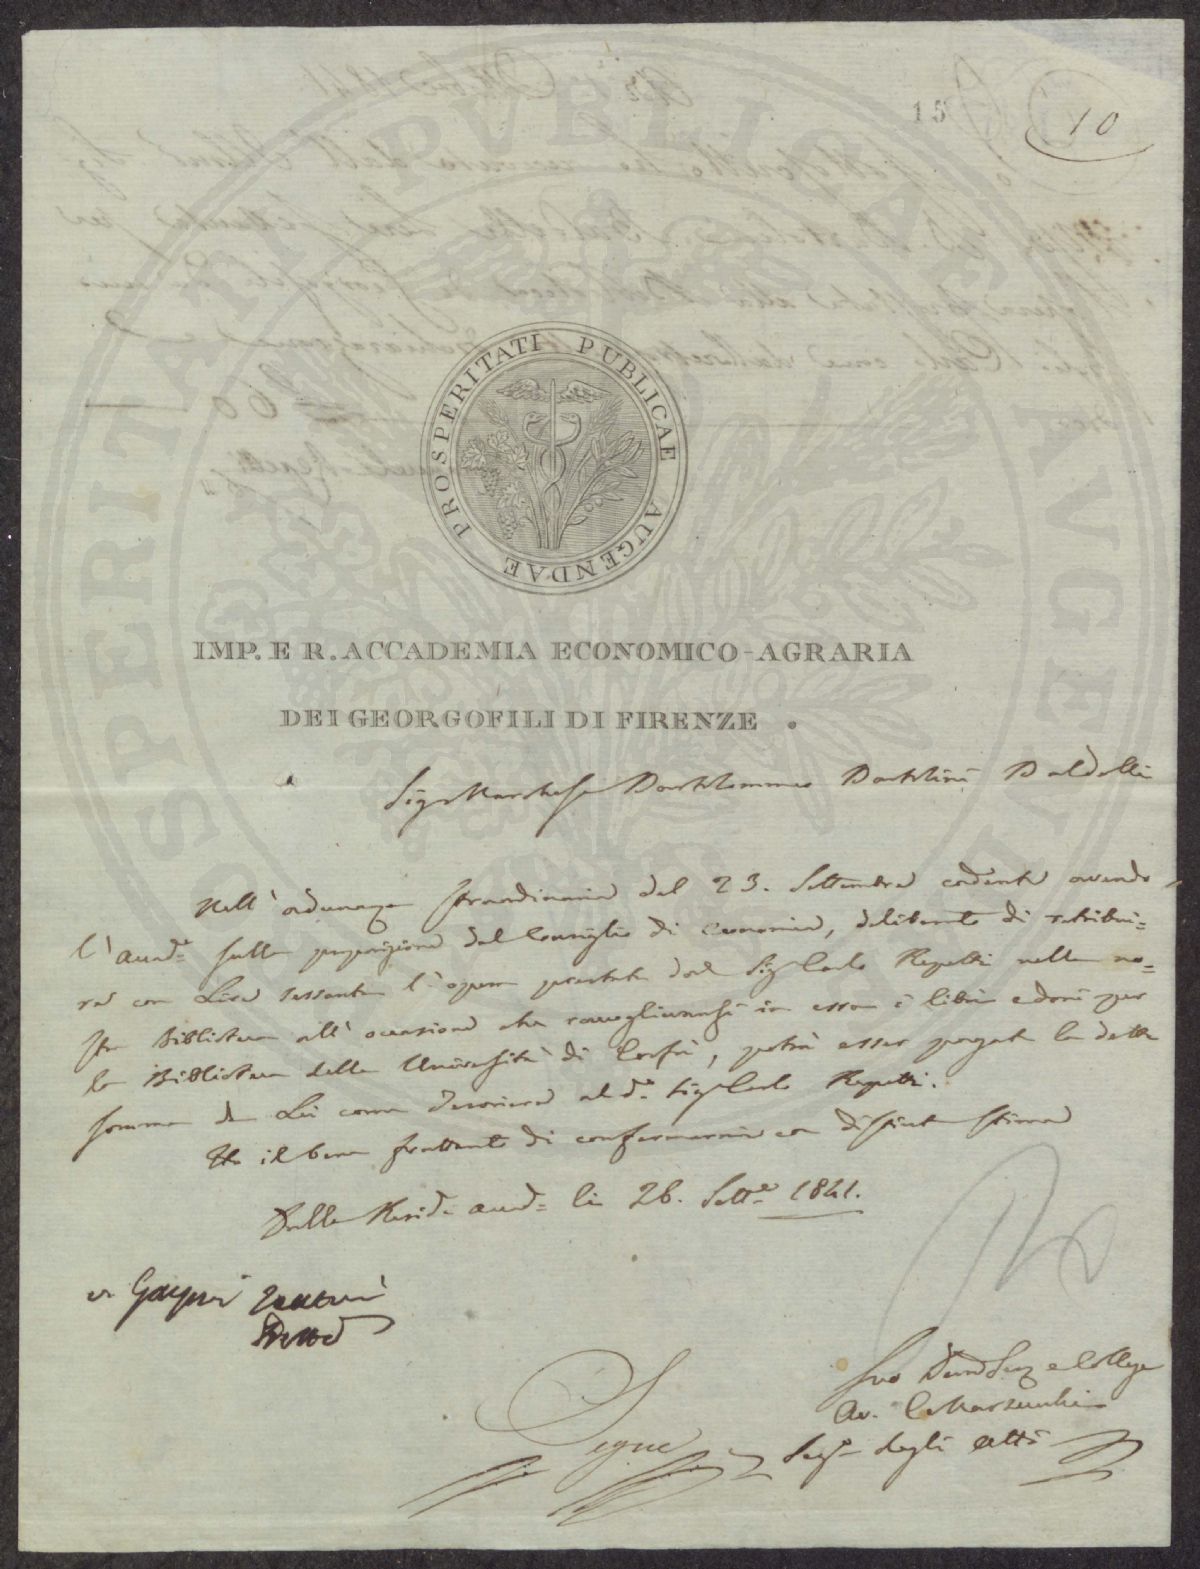 15
10
PROSPERITATI PUBLICAE AUGENDAE
IMP. E R. ACCADEMIA ECONOMICO-AGRARIA
DEI GEORGOFILI DI FIRENZE.
Sig. Marchese Bartolommeo Bartolini Baldelli
Nell' adunanza straordinaria del 23. Settembre cadente avendo
l'Accad.a sulla proposizione del Consiglio di Economia, deliberato di retribui=
re con Lire sessanta l'opera prestata dal Sig. Carlo Repetti nella no=
stra Biblioteca all' occasione che raccoglievansi in essa i libri donati per
la Biblioteca della Università di Corfù, potrà esser pagata la detta
somma da Lei come Tesoriere al d.o Sig. Carlo Repetti.
Ho il bene frattanto di confermarmi con distinta stima
Dalla Resid.a accad.a li 26. Sett.e 1841.
Suo Dev. Serv. e Collega
Av. Marzucchi
Seg.o degli atti
Segue